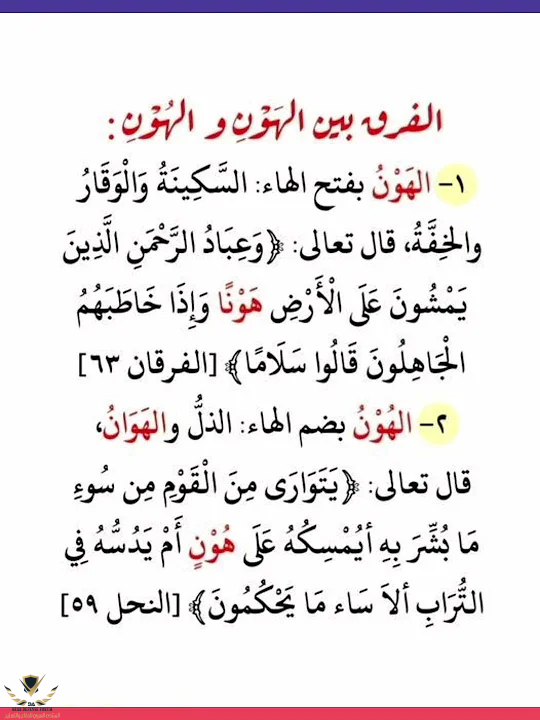 الفرق بين الهَوْنِ و الهُوْنِ:
١- الهَوْنُ بفتح الهاء: السَّكِينَةُ وَالْوَقَارُ
والخِفَّةُ، قال تعالى: ﴿وَعِبَادُ الرَّحْمَنِ الَّذِينَ
يَمْشُونَ عَلَى الْأَرْضِ هَوْنًا وَإِذَا خَاطَبَهُمُ
الْجَاهِلُونَ قَالُوا سَلَامًا﴾ [الفرقان ٦٣]
٢- الهُوْنُ بضم الهاء: الذلُّ والهَوَانُ،
قال تعالى: ﴿يَتَوَارَى مِنَ الْقَوْمِ مِن سُوءِ
مَا بُشِّرَ بِهِ أيُمْسِكُهُ عَلَى هُوْنٍ أَمْ يَدُسُّهُ فِي
التُّرَابِ ألاَ سَاء مَا يَحْكُمُونَ﴾ [النحل ٥٩]